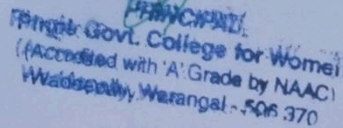 PRINCIPAL
Govt. College for Women
(Accredited with 'A' Grade by NAAC)
Waddepally, Warangal - 506 370